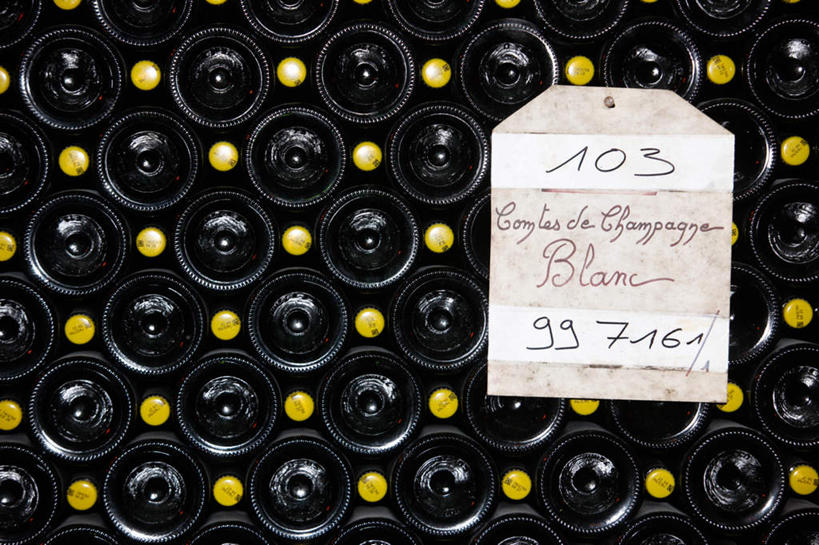 103
Comtes de Champagne
Blanc
99 7161/1